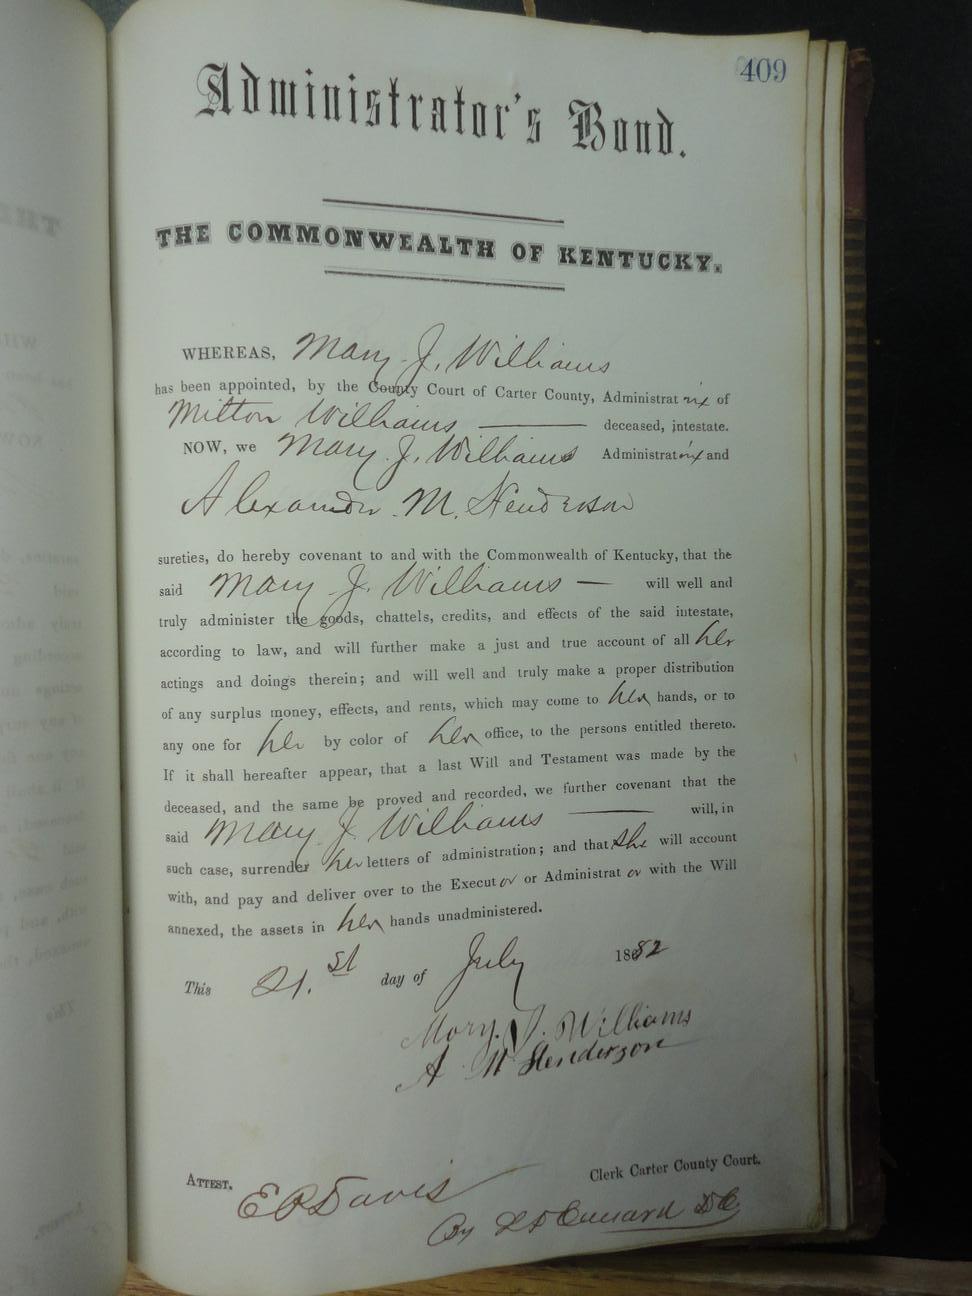 409
Administrator's Bond.
THE COMMONWEALTH OF KENTUCKY.
WHEREAS, Mary J. Williams
has been appointed, by the County Court of Carter County, Administratrix of
Milton Williams deceased, intestate.
NOW, we Mary J. Williams Administratrix and
Alexander M. Henderson
sureties, do hereby covenant to and with the Commonwealth of Kentucky, that the
said Mary J. Williams — will well and
truly administer the goods, chattels, credits, and effects of the said intestate,
according to law, and will further make a just and true account of all her
actings and doings therein; and will well and truly make a proper distribution
of any surplus money, effects, and rents, which may come to her hands, or to
any one for her by color of her office, to the persons entitled thereto.
If it shall hereafter appear, that a last Will and Testament was made by the
deceased, and the same be proved and recorded, we further covenant that the
said Mary J. Williams — will, in
such case, surrender her letters of administration; and that she will account
with, and pay and deliver over to the Executor or Administrator with the Will
annexed, the assets in her hands unadministered.
This 21.st day of July 1882
Mary. J. Williams
A M Henderson
ATTEST, E R Davis Clerk Carter County Court.
By D.C.